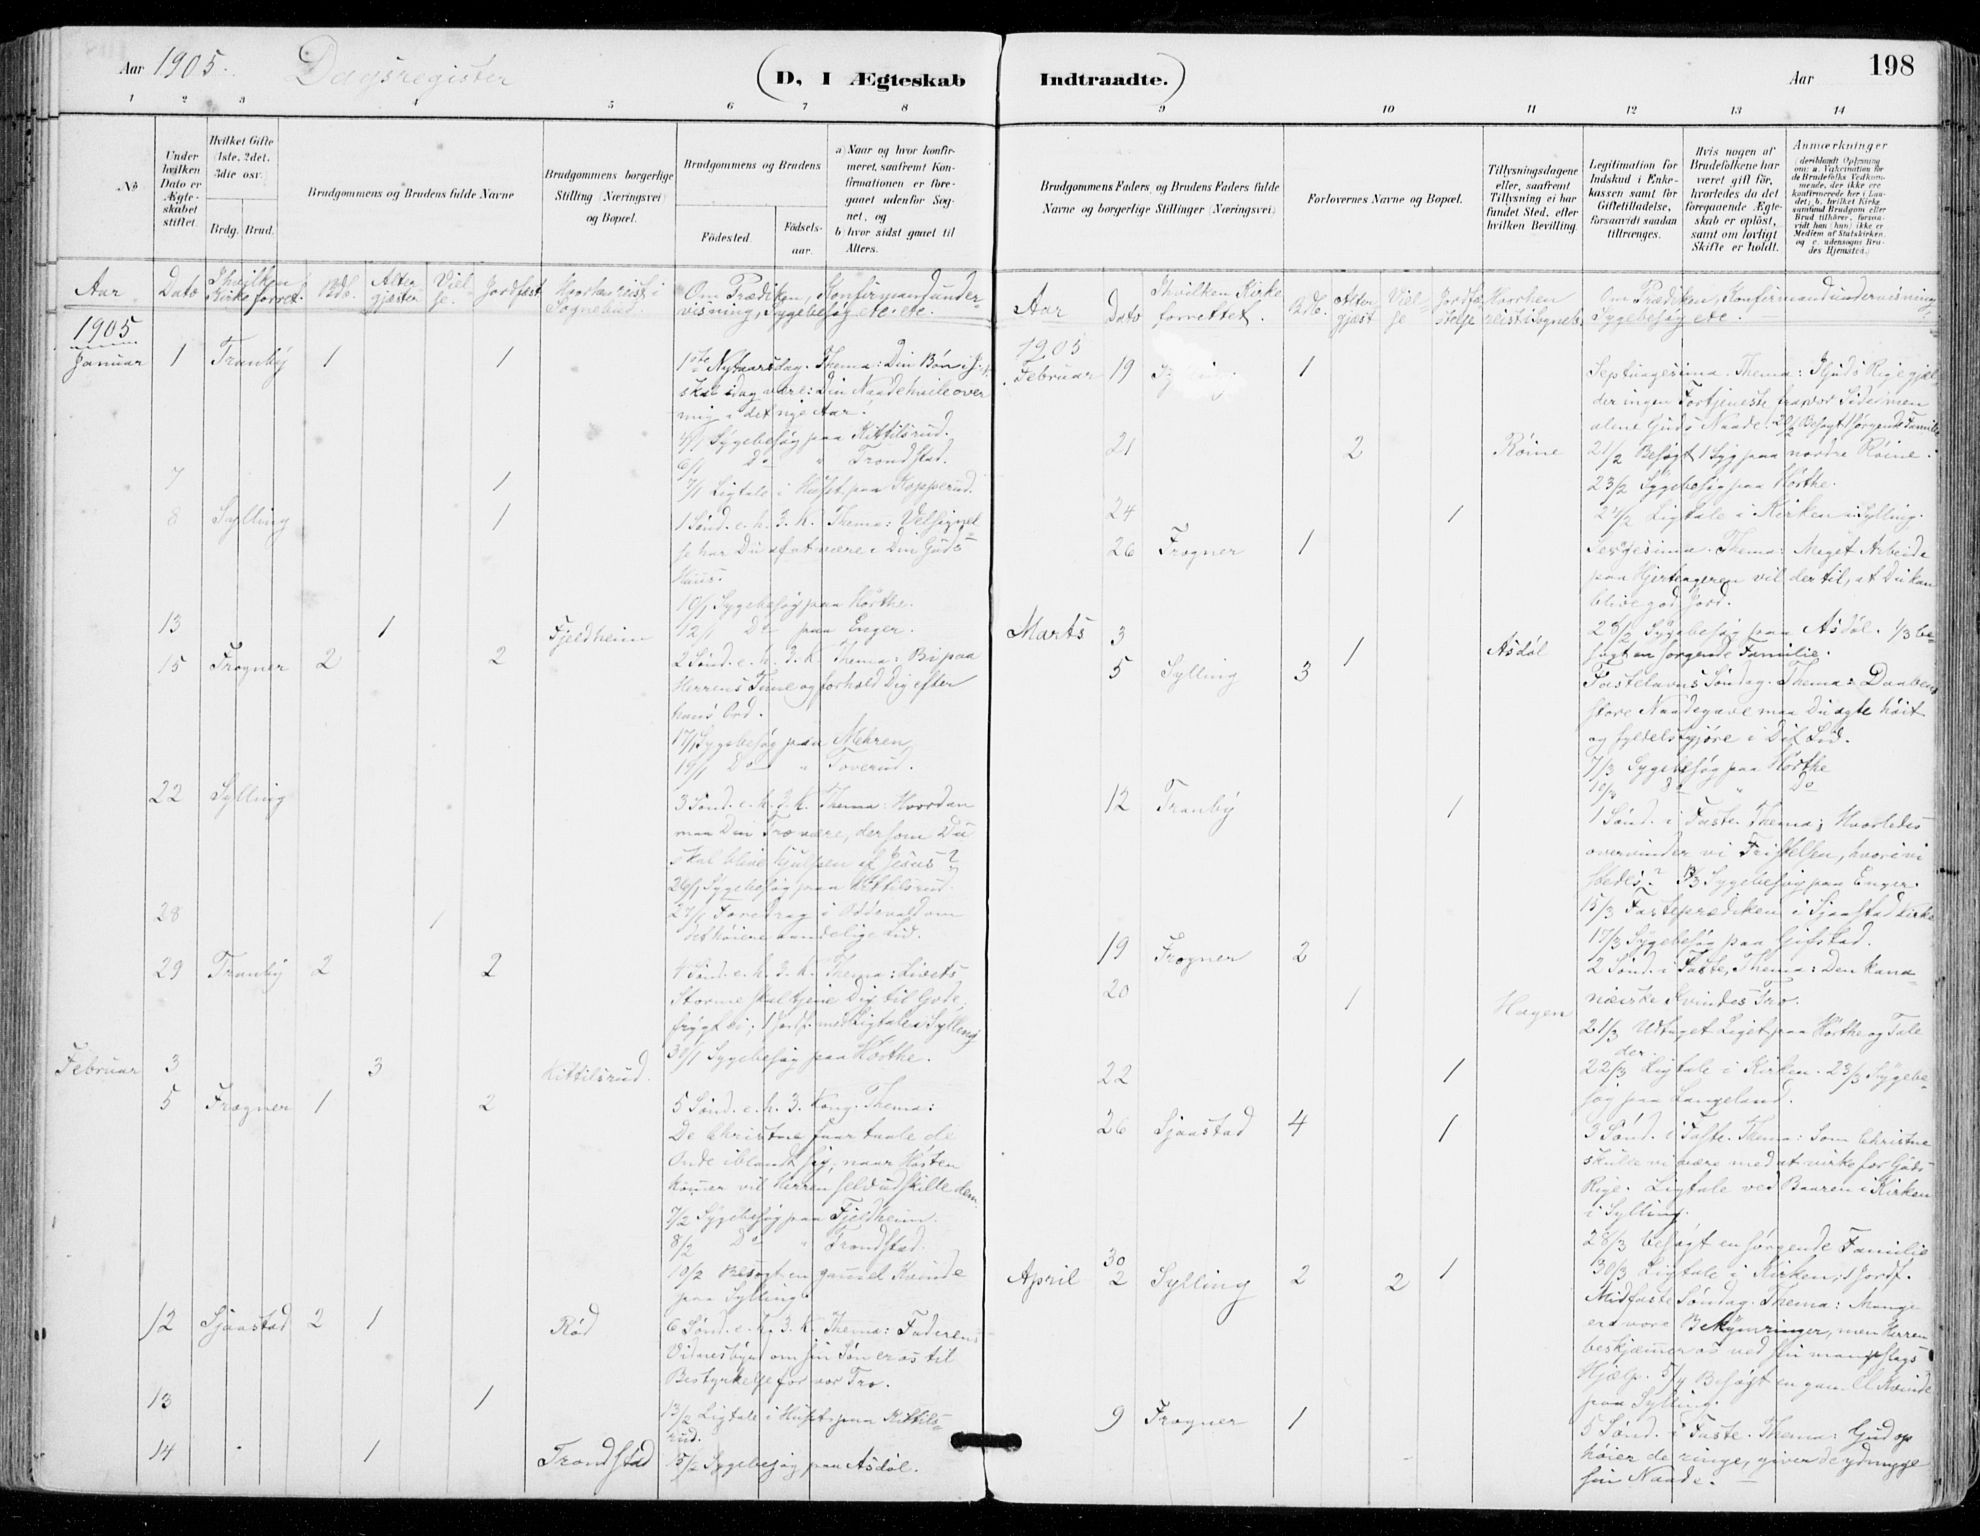 Aar 1905. Dagsregister (D, I Ægteskab
1 2 3 4 5 6 7 8
No
Under hvilken Dato er Ægteskabet stiftet.
Hvilket Gifte (1ste, 2det, 3die osv.
Brdg. Brud.
Brudgommens og Brudens fulde Navne
Brudgommens borgerlige Stilling (Næringsvei) og Bopæl.
Brudgommens og Brudens
Födested.
Födselsaar.
a) Naar og hvor konfirmeret, saafremt Konfirmationen er foregaaet udenfor Sognet, og
b) hvor sidst gaaet til Alters.
Aar Dato I hvilken Kirke forret. Bdb. Altergjæster Vielse. Jordfæst Hvorhen reist i Sognebud. Om Prædiken, Konfirmandundervisning, Sygebesøg etc. etc.
1905
Januar 1 Tranby 1 1 1ste Nytaarsdag. Thema: Din Bøn i J. N.
skal idag være: Din Naade hvile over
mig i det nye Aar!
4/1 Sygebesøg paa Kittilsrud.
6/1 Do " Trondstad.
7 1 7/1 Ligtale i Huset paa Kopperud.
8 Sylling 1 1 Sønd. e. h. 3. K. Thema: Velsignel
se har Du af at være i Din Guds
Huus.
10/1 Sygebesøg paa Hörthe.
13 1 Fjeldheim 12/1 Do paa Enger.
15 Frogner 2 2 2 Sønd. e. h. 3. K. Thema: Bi paa
Herrens Time og forhold Dig efter
hans Ord.
17/1 Sygebesøg paa Mehren
19/1 Do " Toverud.
22 Sylling 3 Sønd. e. h. 3. K. Thema: Hvordan
maa Din Tro være, dersom Du
skal blive hjulpen af Jesus?
26/1 Sygebesøg paa Kittilsrud.
28 1 27/1 Foredrag i Oddevald om
det høiere aandelige Liv.
29 Tranby 2 2 4 Sønd. e. h. 3. K. Thema: Livets
Storme skal tjene Dig til Gode,
frygt ei; 1 Jordf. med Ligtale i Sylling
30/1 Sygebesøg paa Hörthe.
Februar 3 3 Kittilsrud.
5 Frogner 1 2 5 Sønd. e. h. 3. Kong. Thema:
De Christne faar taale de
Onde iblandt sig; naar Høsten
kommer vil Herren selv udskille dem.
7/2 Sygebesøg paa Fjeldheim.
8/2 Do " Trondstad.
10/2 Besøgt en gammel Kvinde
paa Sylling.
12 Sjaastad 2 1 Rød 6 Sønd. e. h. 3. K. Thema: Faderens
Vidnesbyrd om sin Søn er os til
Bestyrkelse for vor Tro.
13 1 13/2 Ligtale i Huset paa Kittils-
rud.
14 1 Trondstad 15/2 Sygebesøg paa Asdøl.
Indtraadte.) Aar 198
9 10 11 12 13 14
Brudgommens Faders og Brudens Faders fulde Navne og borgerlige Stillinger (Næringsvei)
Forlovernes Navne og Bopæl.
Tillysningsdagene eller, saafremt Tillysning ei har fundet Sted, efter hvilken Bevilling.
Legitimation for Indskud i Enkekassen samt for Giftetilladelse, forsaavidt saadan tiltrænges.
Hvis nogen af Brudefolkene har været gift før, hvorledes da det foregaaende Ægteskab er oplöst, samt om lovligt Skifte er holdt.
Anmærkninger (deriblandt Oplysning om: a. Vaccination for de Brudefolks Vedkommende, der ikke ere konfirmerede her i Landet; b. hvilket Kirkesamfund Brudgom eller Brud tilhører, forsaavidt han (hun) ikke er Medlem af Statskirken, og c. udensogns Brudes Hjemsted.)
Aar Dato I hvilken Kirke forrettet. Bdb. Altergjæst Vielse Jordfæstelse Hvorhen reist i Sogneb. Om Prædiken, Konfirmandundervisning
Sygebesøg etc.
1905
Februar 19 Sylling 1 Septuagesima. Thema: I Guds Rige gjæl
der ingen Fortjeneste fra vor Side men
alene Guds Naade. 20/2 Besøgt 1 sørgende Familie
21 2 Röine 21/2 Besøgt 1 Syg paa nordre Röine.
23/2 Sygebesøg paa Hörthe.
24 1 24/2 Ligtale i Kirken i Sylling.
26 Frogner 1 Sexagesima. Thema: Meget Arbeide
paa Hjerteageren vil der til, at Du kan
blive god Jord.
Marts 3 1 Asdøl 28/2 Sygebesøg paa Asdøl. 1/3 be-
søgt en sørgende Familie.
5 Sylling 3 Fastelavns Søndag. Thema: Daabens
store Naadegave maa Du agte høit
og fyldestgjøre i Dit Liv.
7/3 Sygebesøg paa Hörthe
10/3 Do " Do
12 Tranby 1 1 Sønd. i Faste. Thema: Hvorledes
overvinder vi Fristelsen, hvori vi
stedes? 13/3 Sygebesøg paa Enger.
15/3 Fasteprædiken i Sjaastad Kirke
17/3 Sygebesøg paa Gifstad.
19 Frogner 2 2 Sønd. i Faste, Thema: Den kana-
20 1 Hagen næiske Kvindes Tro.
21/3 Udtaget Liget paa Hörthe og Tale
der.
22 1 22/3 Ligtale i Kirken. 23/3 Sygebe-
søg paa Langeland.
26 Sjaastad 4 1 3 Sønd. i Faste. Thema: Som Christne
skulle vi være med at virke for Guds
Rige. Ligtale ved Baaren i Kirken
i Sylling.
28/3 besøgt en sørgende Familie
30 1 30/3 Ligtale i Kirken, 1 Jordf.
April 2 Sylling 2 2 Midfaste Søndag. Thema: Mange
ere vore Bekymringer, men Herren
beskjæmmer os ved sin mangeslags
Hjælp. 5/4 Besøgt en gammel Kvinde
paa Sylling.
9 Frogner 1 5 Sønd. i Faste. Thema: Gud op
høier de ringe, giver de ydmyge
sin Naade.